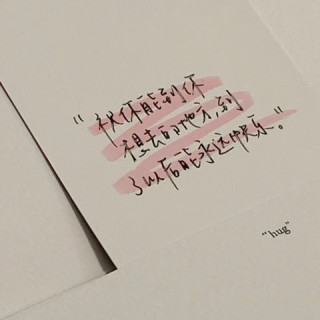 “祝你能到你
想去的地方,到
了以后能永远快乐。”
“hug”